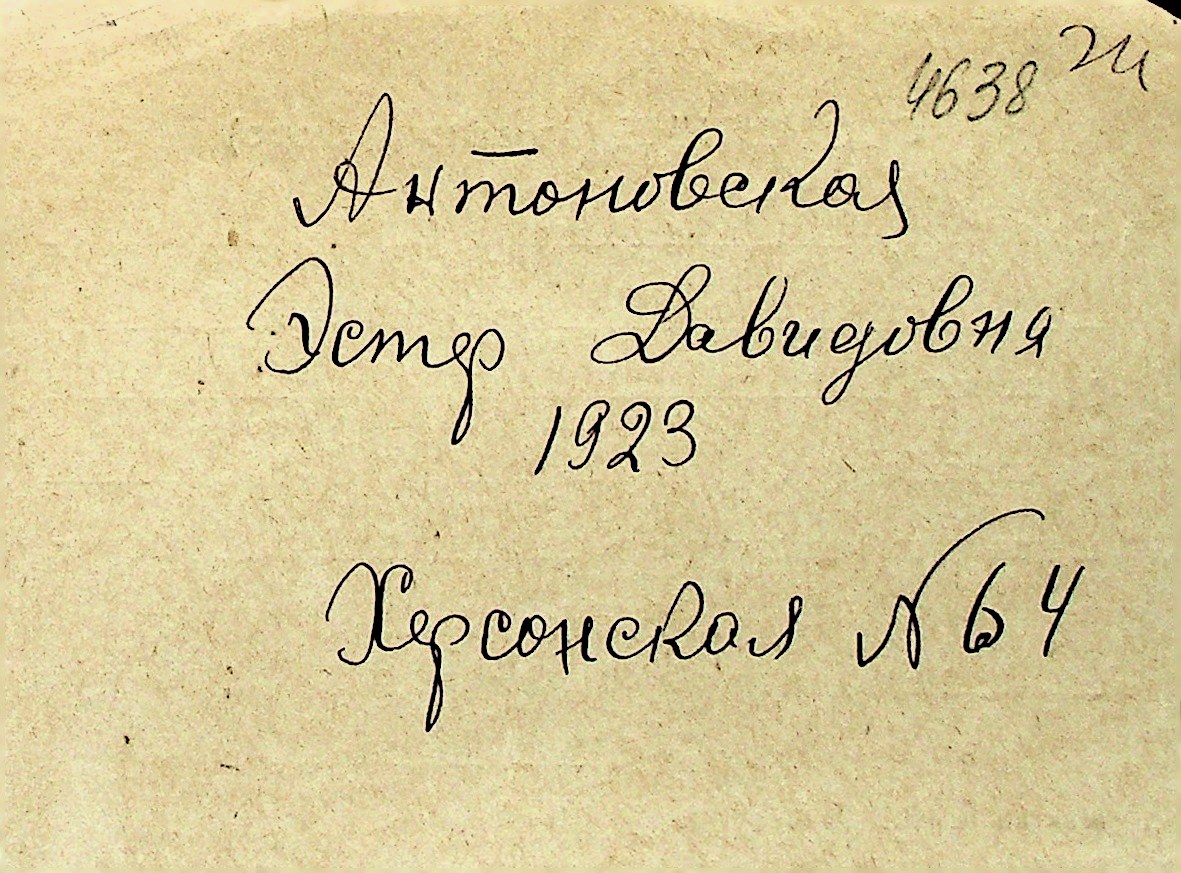 4638
Антоновская
Эстер Давидовна
1923
Херсонская № 64